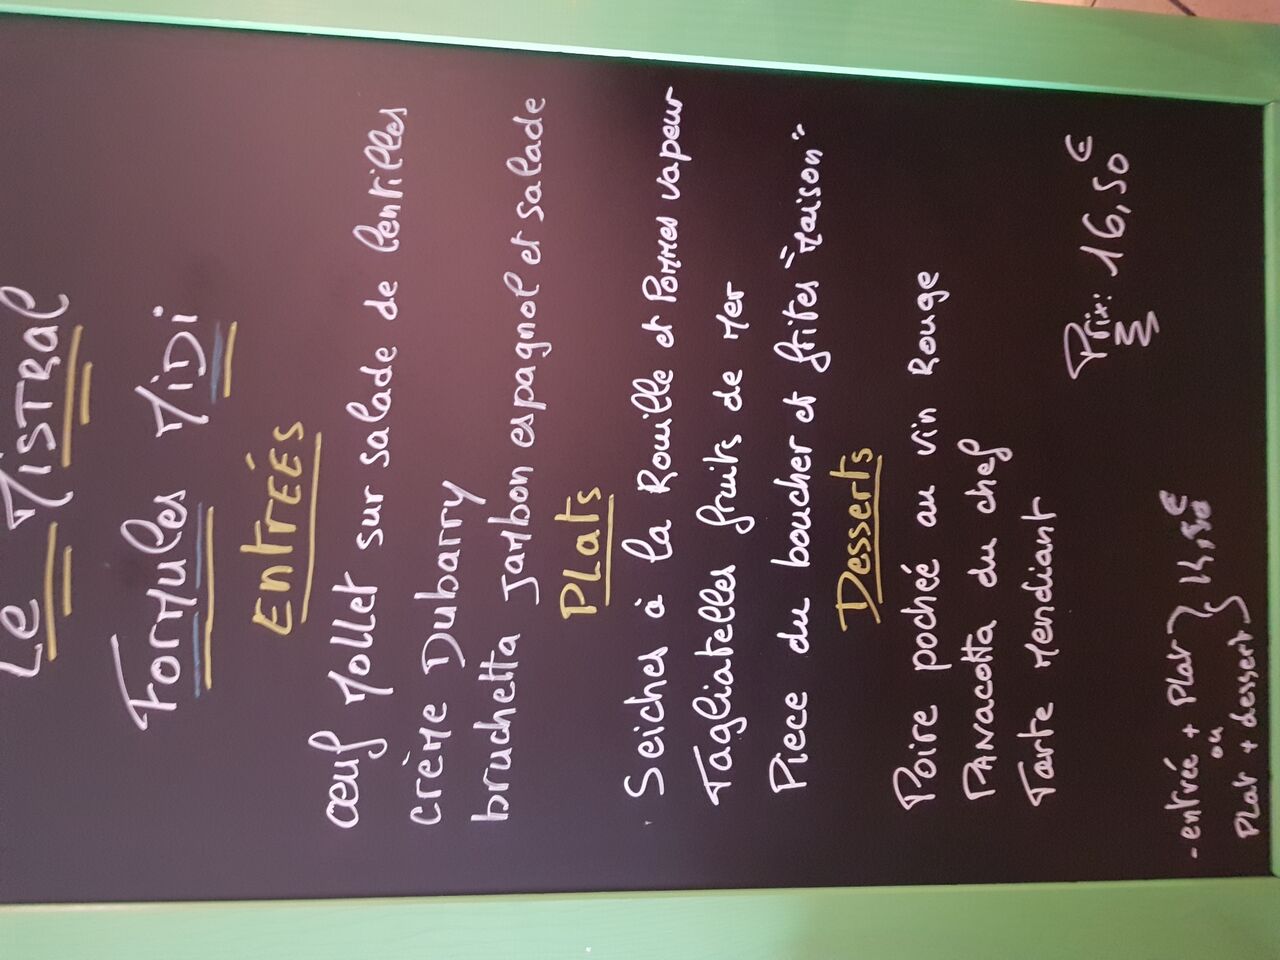 Le MISTRAL
Formules MiDi
EntréEs
œuf Mollet sur salade de lentilles
crème Dubarry
bruchetta Jambon espagnol et salade
PLats
Seiches à la Rouille et Pommes vapeur
Tagliatelles fruits de Mer
Piece du boucher et frites "Maison"
Desserts
Poire pocheé au vin Rouge
PANacotta du chef
Tarte Mendiant
Prix: 16,50€
- entrée + Plat
ou
Plat + dessert